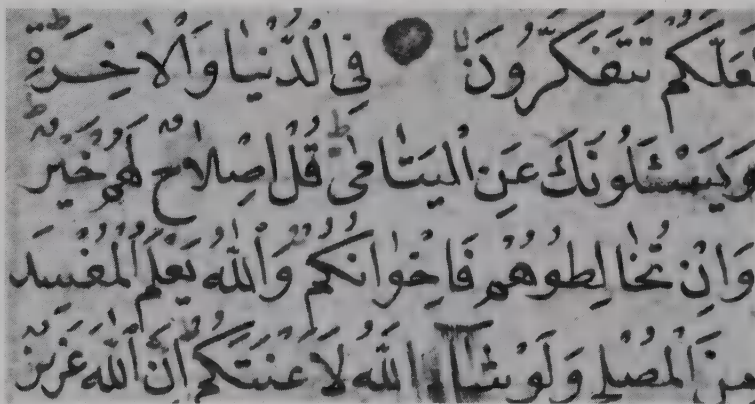 لَعَلَّكُمْ تَتَفَكَّرُونَ فِي الدُّنْيَا وَالْاٰخِرَةِ ط
وَيَسْـَٔلُونَكَ عَنِ الْيَتَامٰى ط قُلْ اِصْلَاحٌ لَهُمْ خَيْرٌ
وَاِنْ تُخَالِطُوهُمْ فَاِخْوَانُكُمْ وَاللّٰهُ يَعْلَمُ الْمُفْسِدَ
مِنَ الْمُصْلِحِ وَلَوْ شَاءَ اللّٰهُ لَاَعْنَتَكُمْ اِنَّ اللّٰهَ عَزِيزٌ